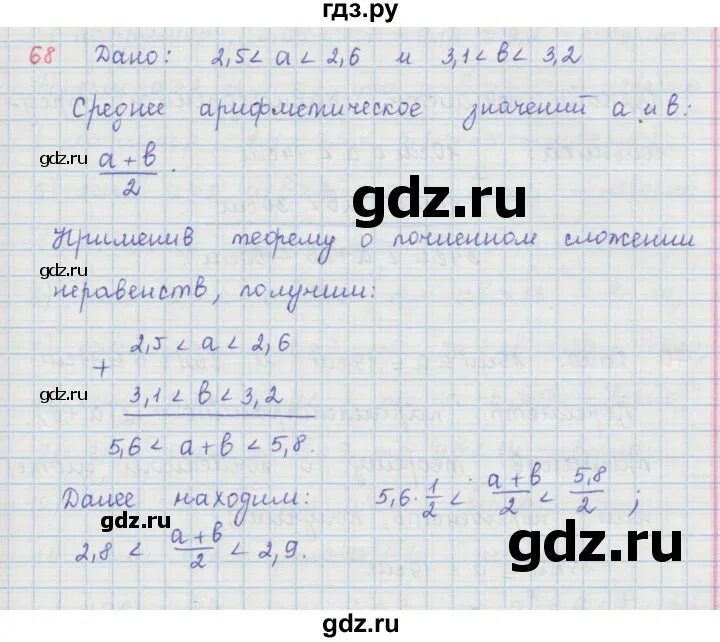 гдз.ру
68 Дано: 2,5 < a < 2,6 и 3,1 < b < 3,2
Среднее арифметическое значений a и b:
gdz.ru
(a + b)/2.
gdz.ru
Применив теорему о почленном сложении
gdz.ru
неравенств, получим:
2,5 < a < 2,6
+
gdz.ru
3,1 < b < 3,2
5,6 < a + b < 5,8.
Далее находим: 5,6 · 1/2 < (a + b)/2 < 5,8/2 ;
gdz.ru
2,8 < (a + b)/2 < 2,9.
gdz.ru
gdz.ru